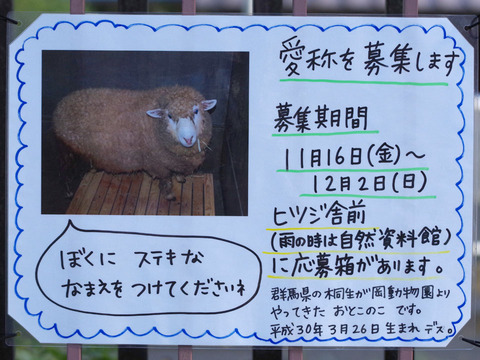 愛称を募集します
募集期間
11月16日(金)～
12月2日(日)
ヒツジ舎前
(雨の時は自然資料館)
に応募箱があります。
群馬県の桐生が岡動物園より
やってきた おとこのこ です。
平成30年3月26日生まれ デス。
ぼくに ステキな
なまえを つけてくださいネ